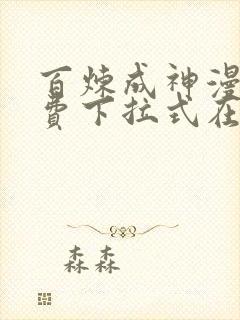 百炼成神漫
费下拉式在
森森